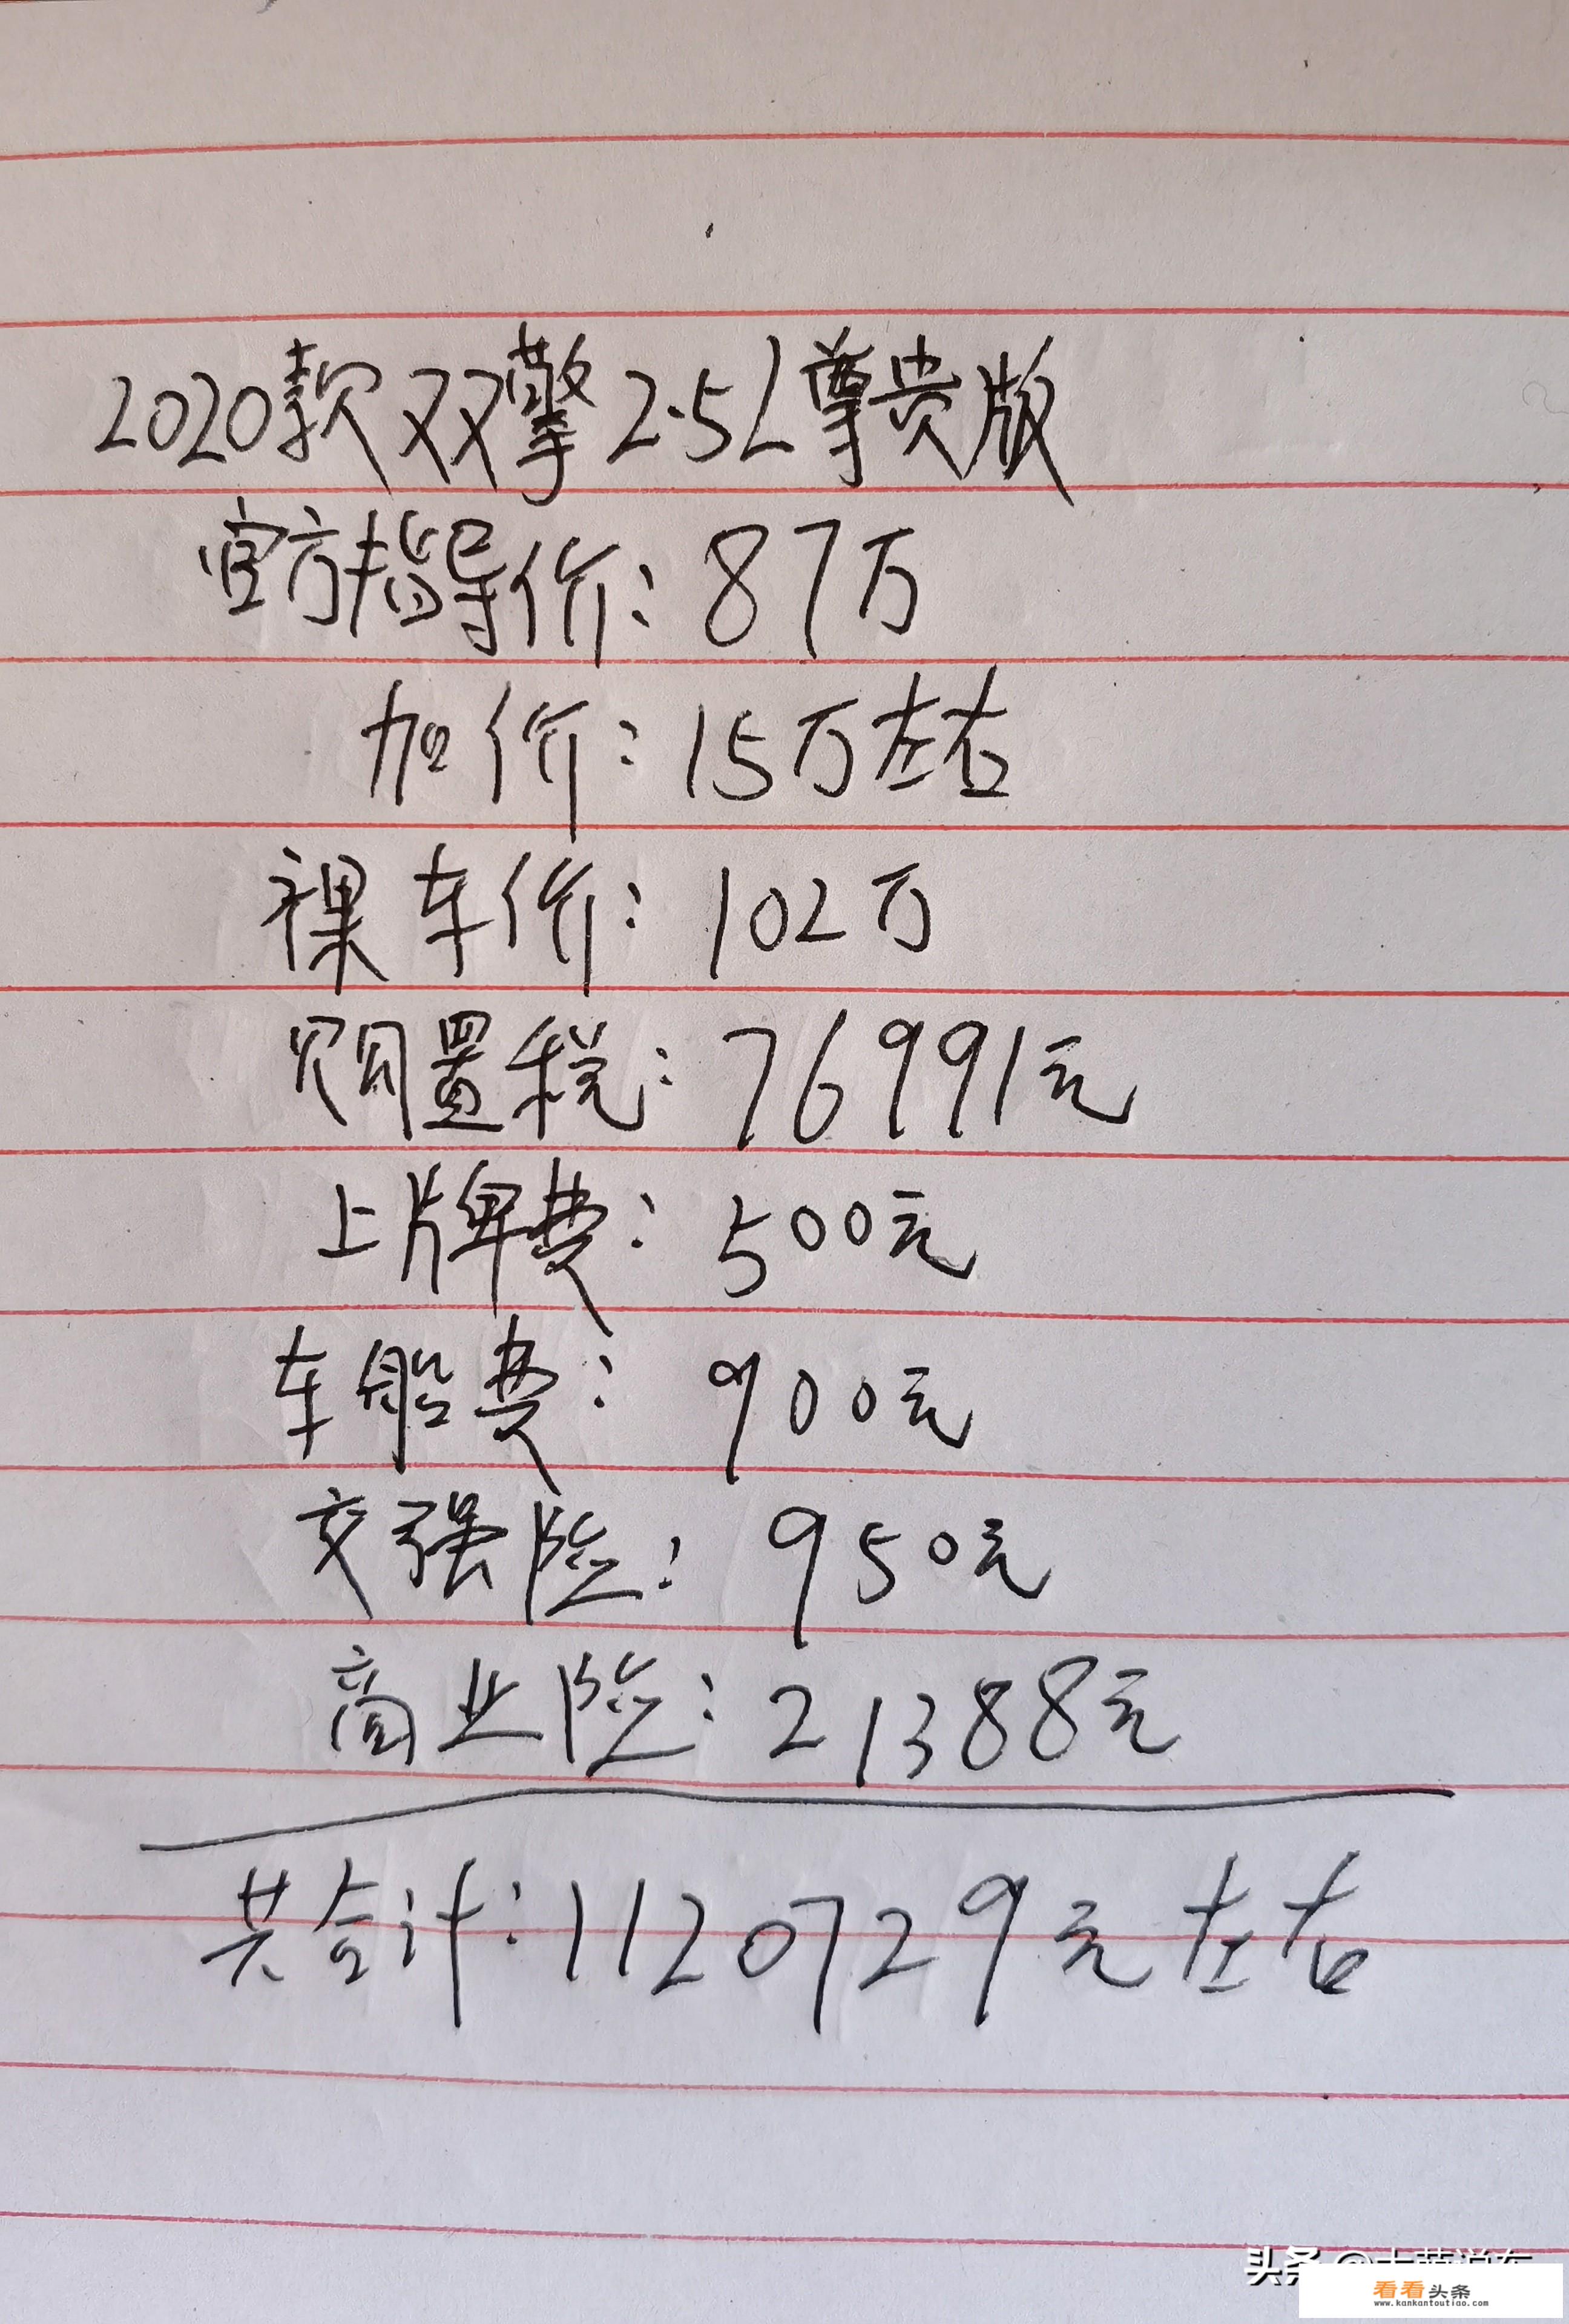 2020款双擎2.5L尊贵版
官方指导价：87万
加价：15万左右
裸车价：102万
购置税：76991元
上牌费：500元
车船费：900元
交强险：950元
商业险：21388元
共合计：1120729元左右
头条
看看头条
www.kankantoutiao.com